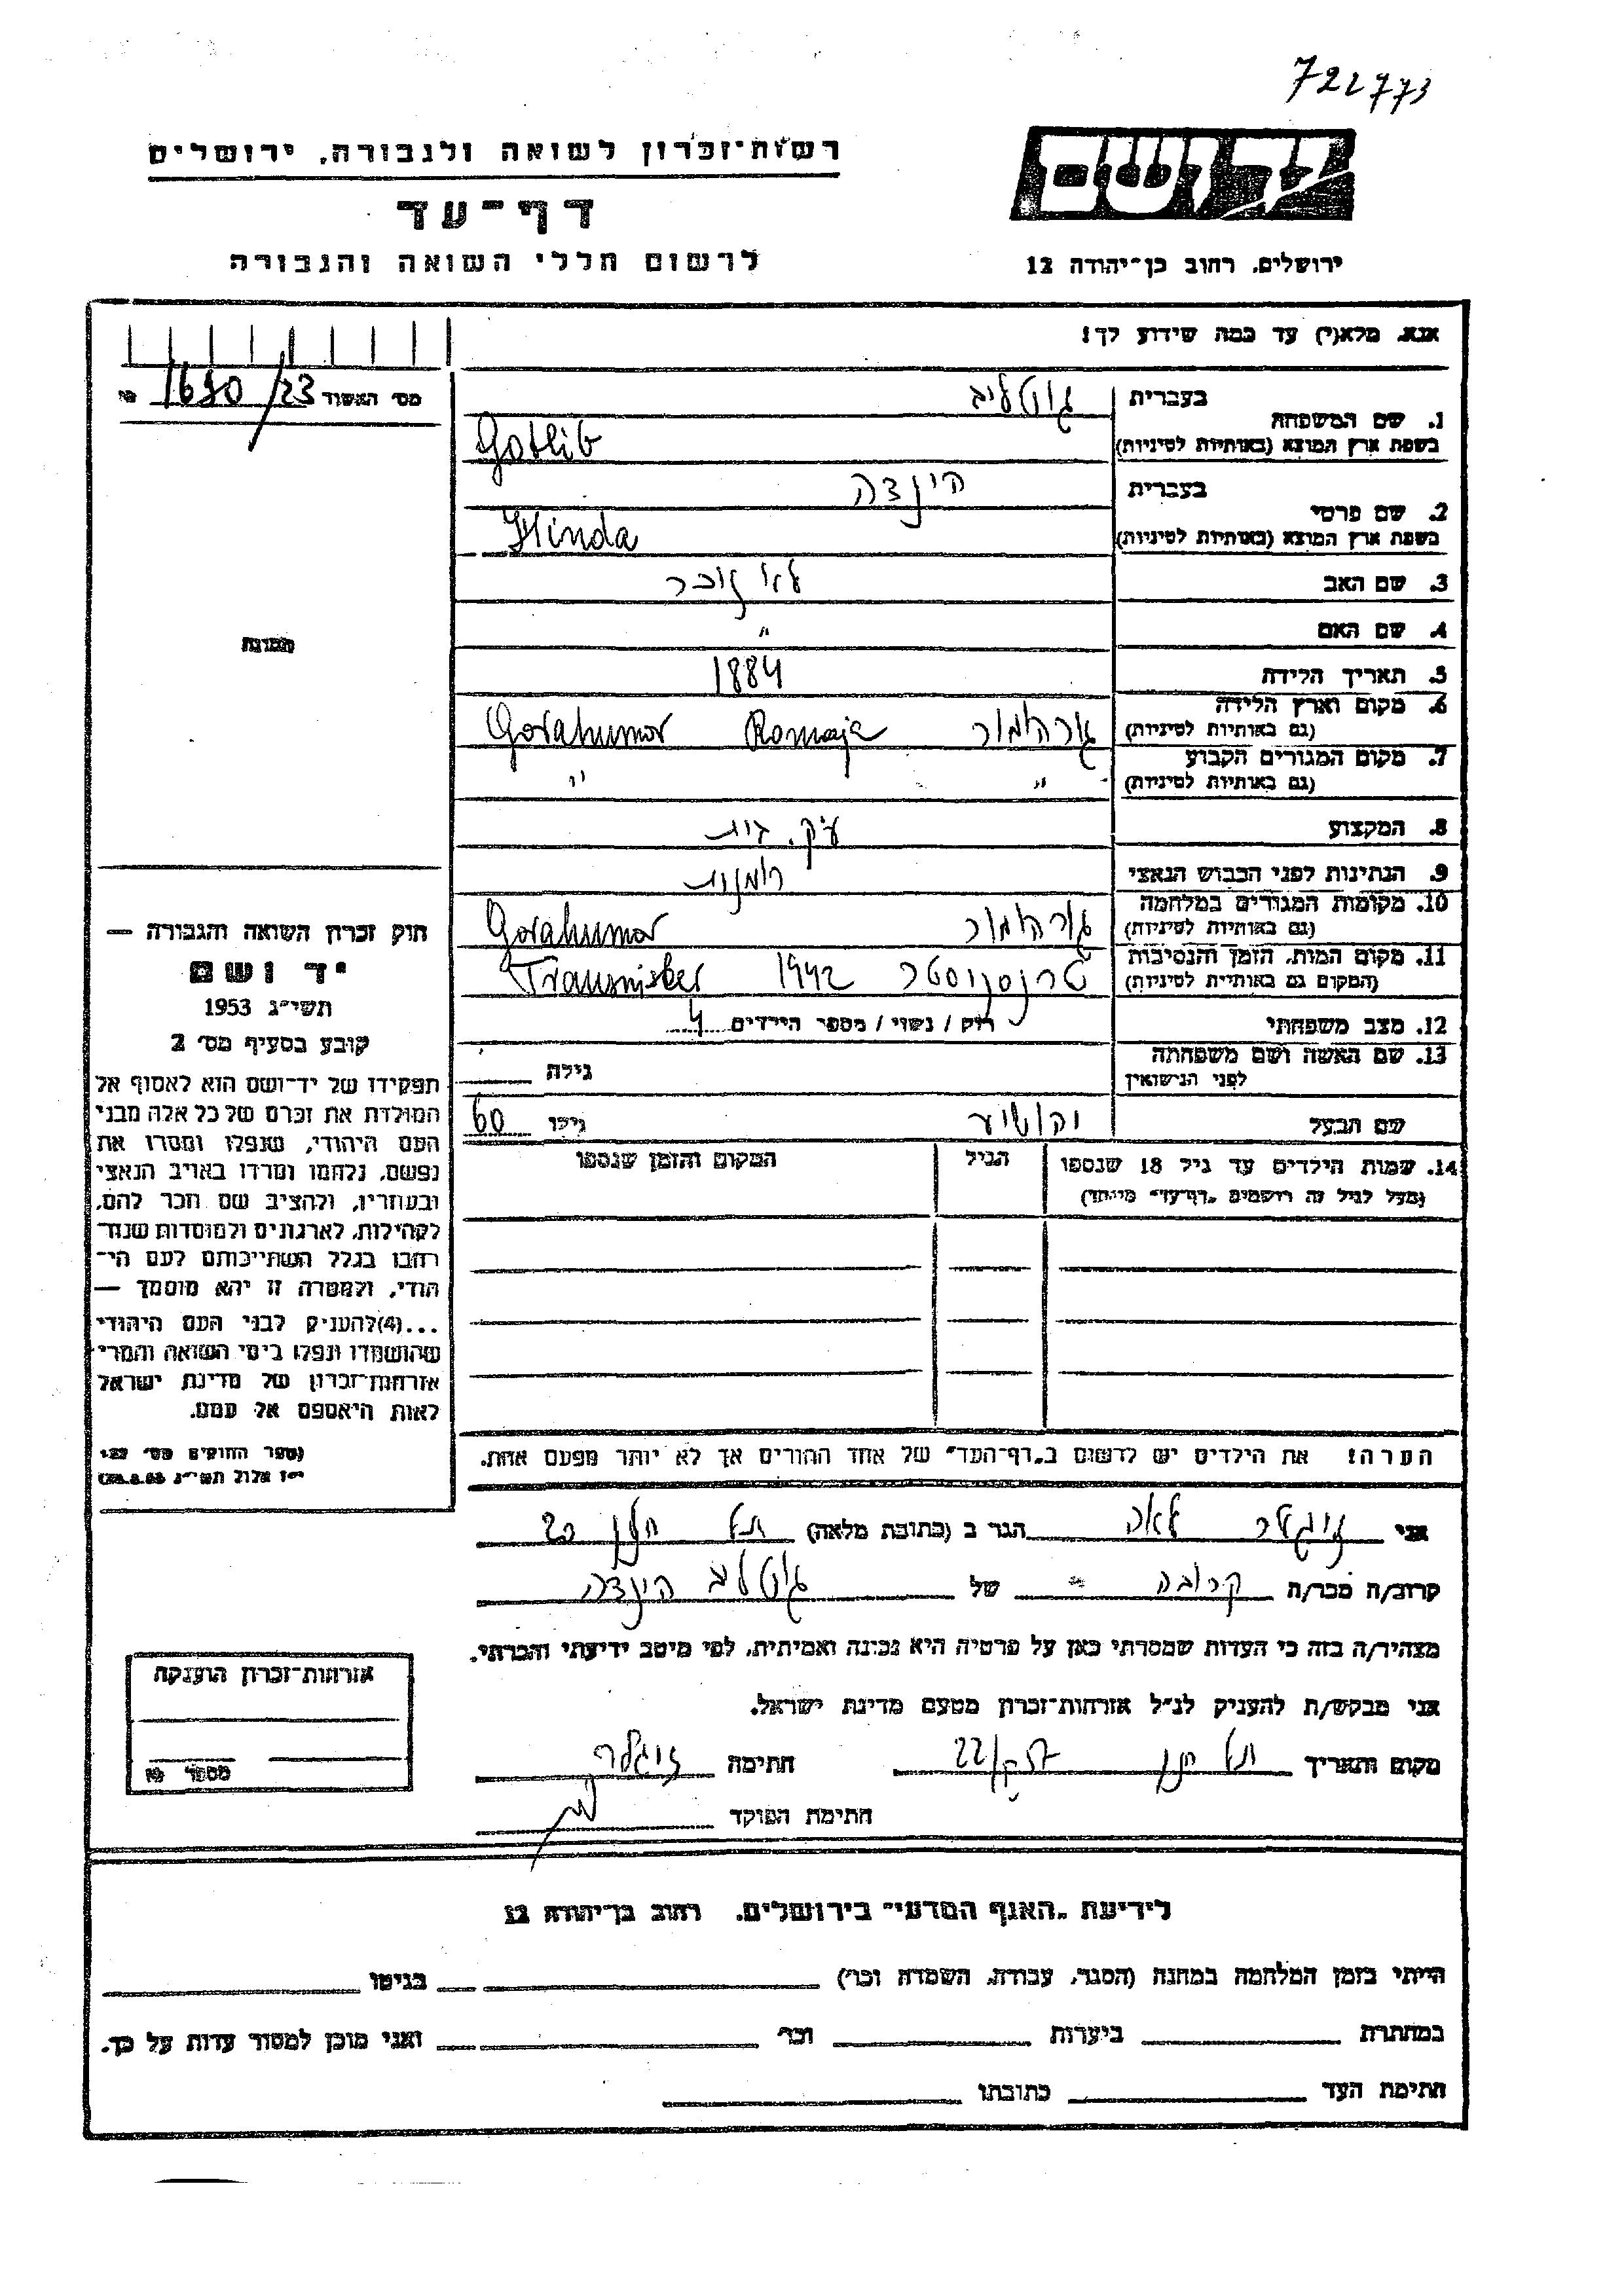 722773
רשות־זכרון לשואה ולגבורה, ירושלים
יד ושם
דף־עד
לרשום חללי השואה והגבורה
ירושלים, רחוב בן־יהודה 12
אנא, מלא(י) עד כמה שידוע לך!
מס' האשוד № 1690/23
1. שם המשפחה
בעברית גוטליב
בשפת ארץ המוצא (באותיות לטיניות) Gotlib
2. שם פרטי
בעברית הינדה
בשפת ארץ המוצא (באותיות לטיניות) Hinda
3. שם האב לא זוכר
4. שם האם "
תמונה
5. תאריך הלידה 1884
6. מקום וארץ הלידה (גם באותיות לטיניות) גורהומור Romaja Gorahumor
7. מקום המגורים הקבוע (גם באותיות לטיניות) " "
8. המקצוע עק. בית
9. הנתינות לפני הכבוש הנאצי רומנית
10. מקומות המגורים במלחמה (גם באותיות לטיניות) גורהומור Gorahumor
11. מקום המות, הזמן והנסיבות (המקום גם באותיות לטיניות) טרנסניסטר 1942 Transnister
12. מצב משפחתי רוק / נשוי / מספר הילדים 4
13. שם האשה ושם משפחתה לפני הנישואין גילה
שם הבעל יהושע גילו 60
14. שמות הילדים עד גיל 18 שנספו הגיל המקום והזמן שנספו
(מעל לגיל זה רושמים "דף־עד" מיוחד)
הערה! את הילדים יש לרשום ב"דף־העד" של אחד ההורים אך לא יותר מפעם אחת.
חוק זכרון השואה והגבורה —
יד ושם
תשי"ג 1953
קובע בסעיף מס' 2
תפקידו של יד־ושם הוא לאסוף אל
המולדת את זכרם של כל אלה מבני
העם היהודי, שנפלו ומסרו את
נפשם, נלחמו ומרדו באויב הנאצי
ובעוזריו, ולהציב שם וזכר להם,
לקהילות, לארגונים ולמוסדות שנח־
רבו בגלל השתייכותם לעם הי־
הודי, ולמטרה זו יהא מוסמך —
...(4)להעניק לבני העם היהודי
שהושמדו ונפלו בימי השואה והמרי
אזרחות־זכרון של מדינת ישראל
לאות היאספם אל עמם.
(ספר החוקים מס' 132
י"ז אלול תשי"ג 28.8.53)
אני זיגלר לאה הגר ב (כתובת מלאה) תל חנן 20
קרוב/ה מכר/ה קרובה של גוטליב הינדה
מצהיר/ה בזה כי העדות שמסרתי כאן על פרטיה היא נכונה ואמיתית, לפי מיטב ידיעתי והכרתי.
אני מבקש/ת להעניק לנ"ל אזרחות־זכרון מטעם מדינת ישראל.
מקום ותאריך תל חנן חתימה זיגלר
חתימת הפוקד
אזרחות־זכרון הוענקה
מספר №
לידיעת "האגף המדעי" בירושלים, רחוב בן־יהודה 12
הייתי בזמן המלחמה במחנה (הסגר, עבודה, השמדה וכו') בגיטו
במחתרת ביערות וכו' ואני מוכן למסור עדות על כך.
חתימת העד כתובתו